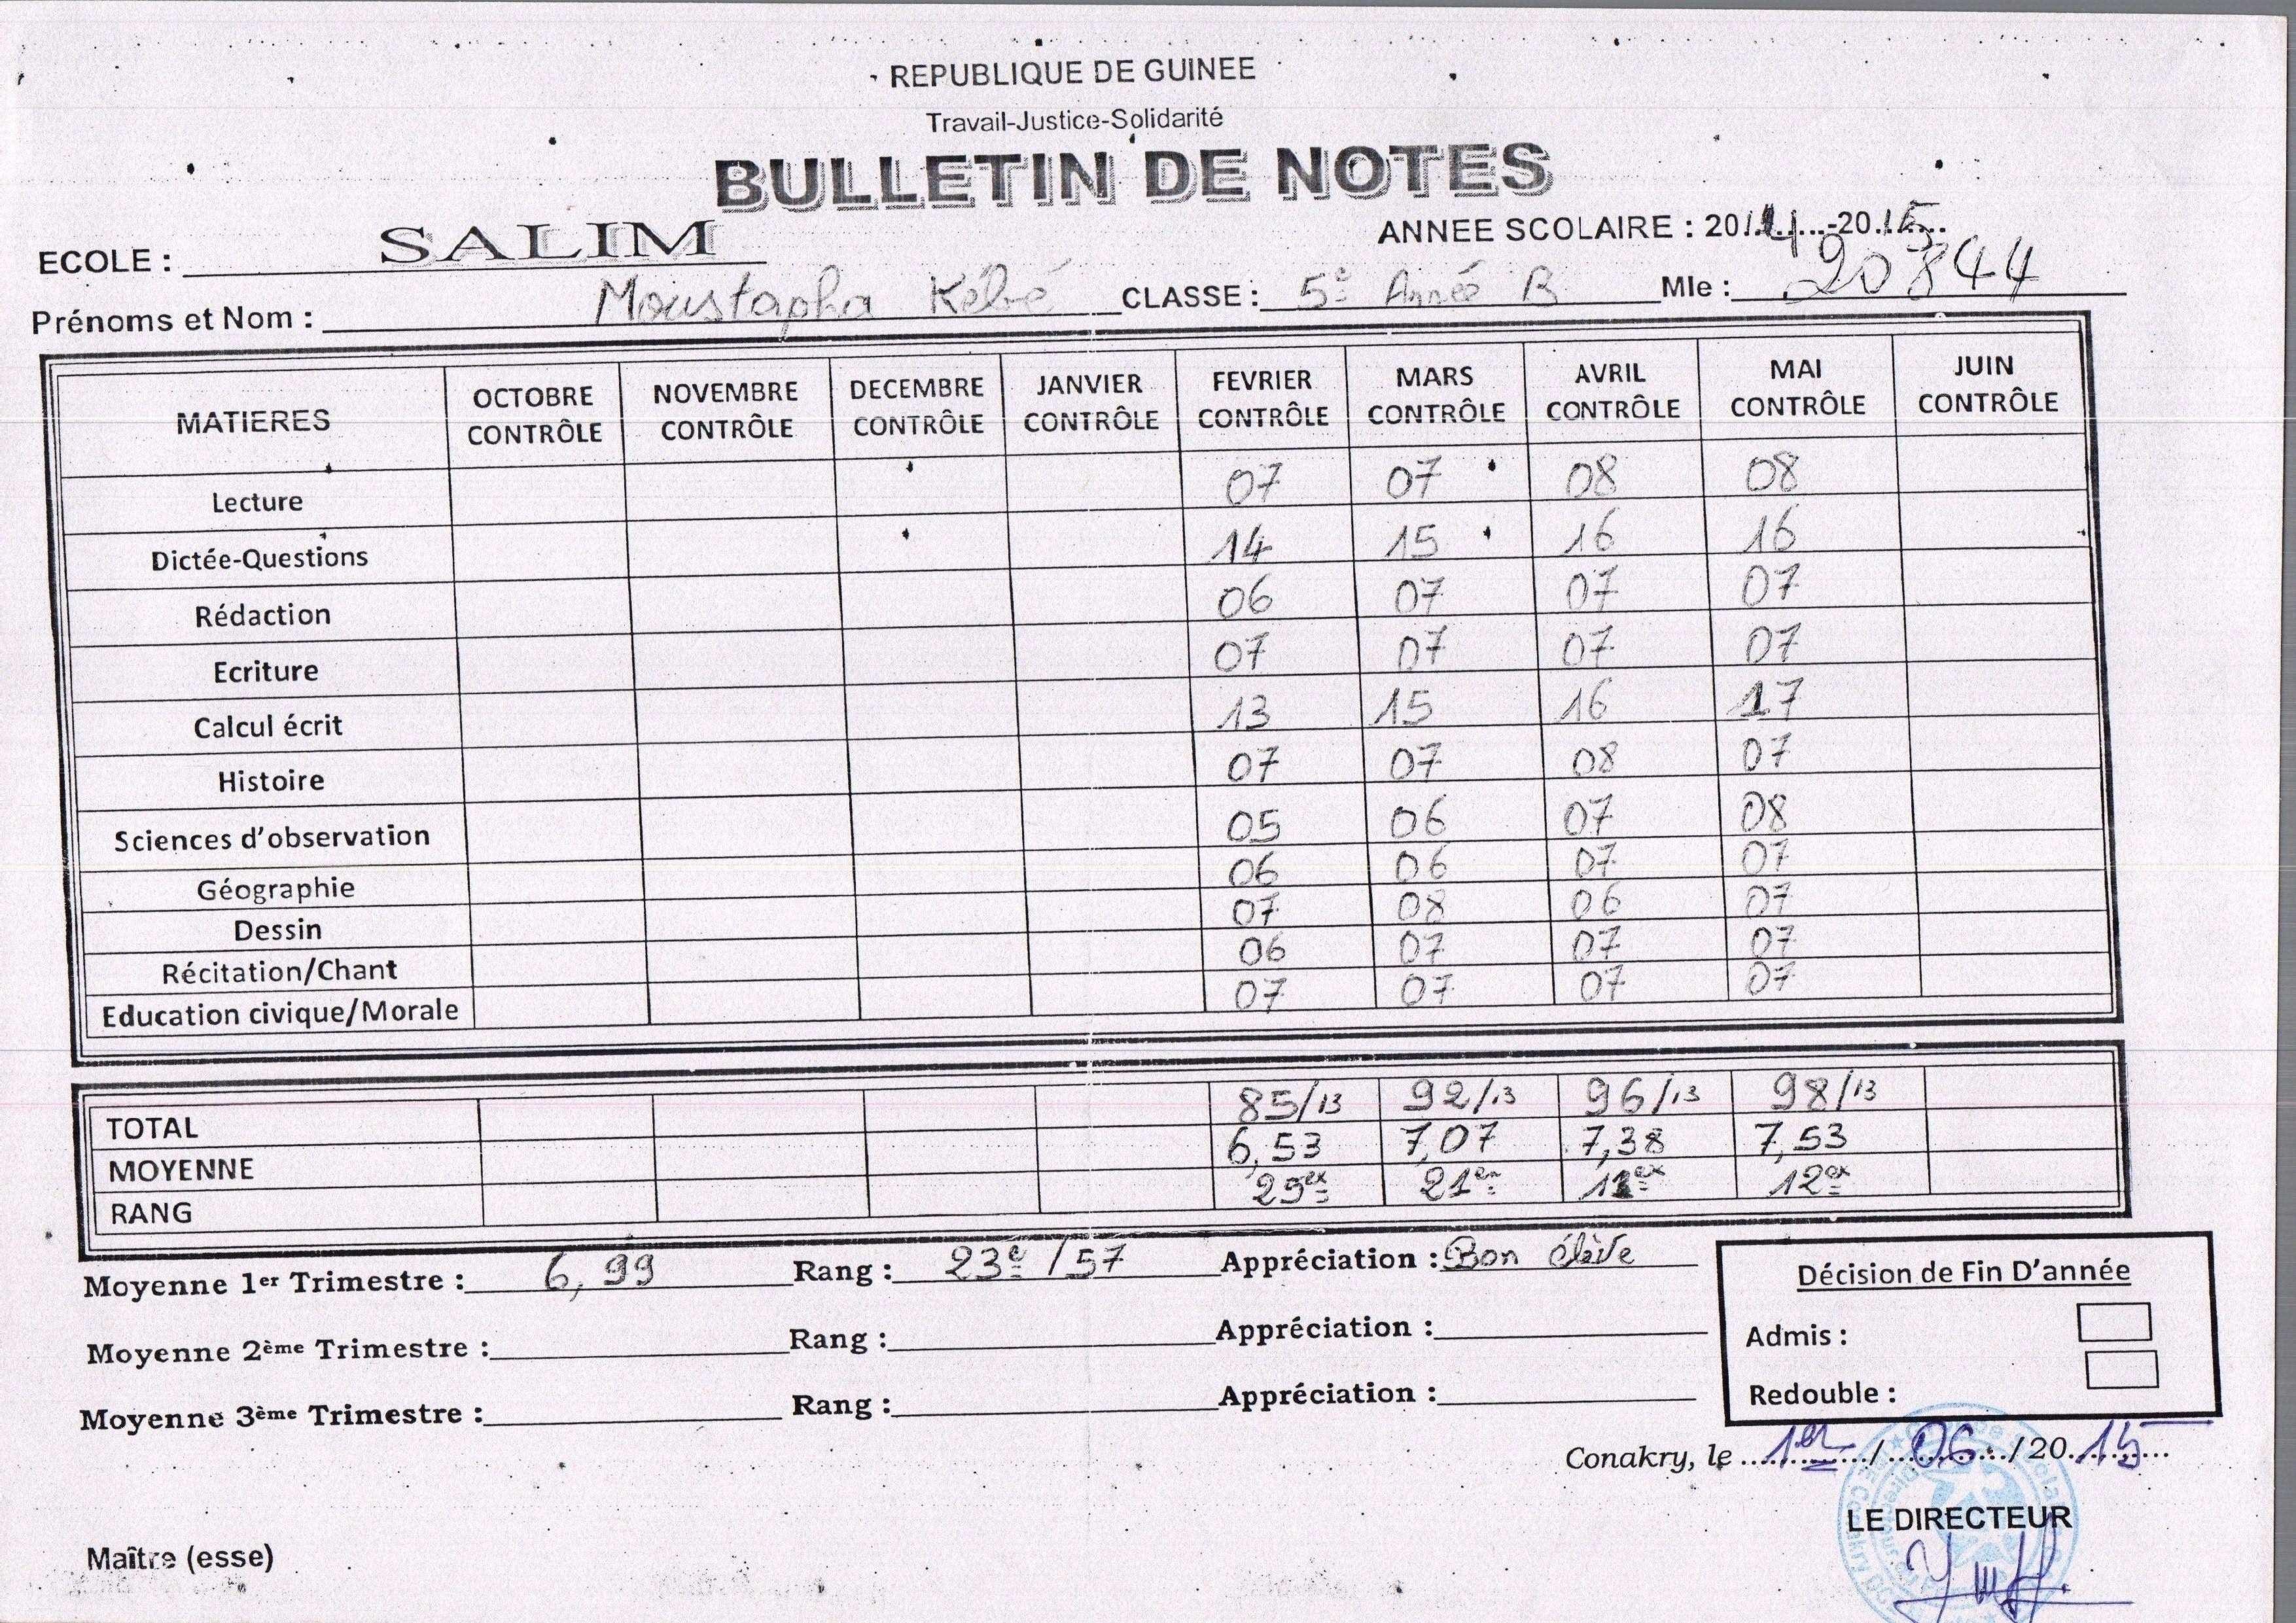 REPUBLIQUE DE GUINEE
Travail-Justice-Solidarité
BULLETIN DE NOTES
ECOLE : SALIM ANNEE SCOLAIRE : 2014-2015
Prénoms et Nom : Moustapha Kébé CLASSE : 5e Année B Mle : 20844
MATIERES OCTOBRE CONTRÔLE NOVEMBRE CONTRÔLE DECEMBRE CONTRÔLE JANVIER CONTRÔLE FEVRIER CONTRÔLE MARS CONTRÔLE AVRIL CONTRÔLE MAI CONTRÔLE JUIN CONTRÔLE
Lecture 07 07 08 08
Dictée-Questions 14 15 16 16
Rédaction 06 07 07 07
Ecriture 07 07 07 07
Calcul écrit 13 15 16 17
Histoire 07 07 08 07
Sciences d'observation 05 06 07 08
Géographie 06 06 07 07
Dessin 07 08 06 07
Récitation/Chant 06 07 07 07
Education civique/Morale 07 07 07 07
TOTAL 85/13 92/13 96/13 98/13
MOYENNE 6,53 7,07 7,38 7,53
RANG 29ex 21e 11ex 12ex
Moyenne 1er Trimestre : 6,99 Rang : 23e /57 Appréciation : Bon élève
Moyenne 2ème Trimestre : Rang : Appréciation :
Moyenne 3ème Trimestre : Rang : Appréciation :
Décision de Fin D'année
Admis :
Redouble :
Conakry, le 1er / 06 / 2015
LE DIRECTEUR
Maître (esse)